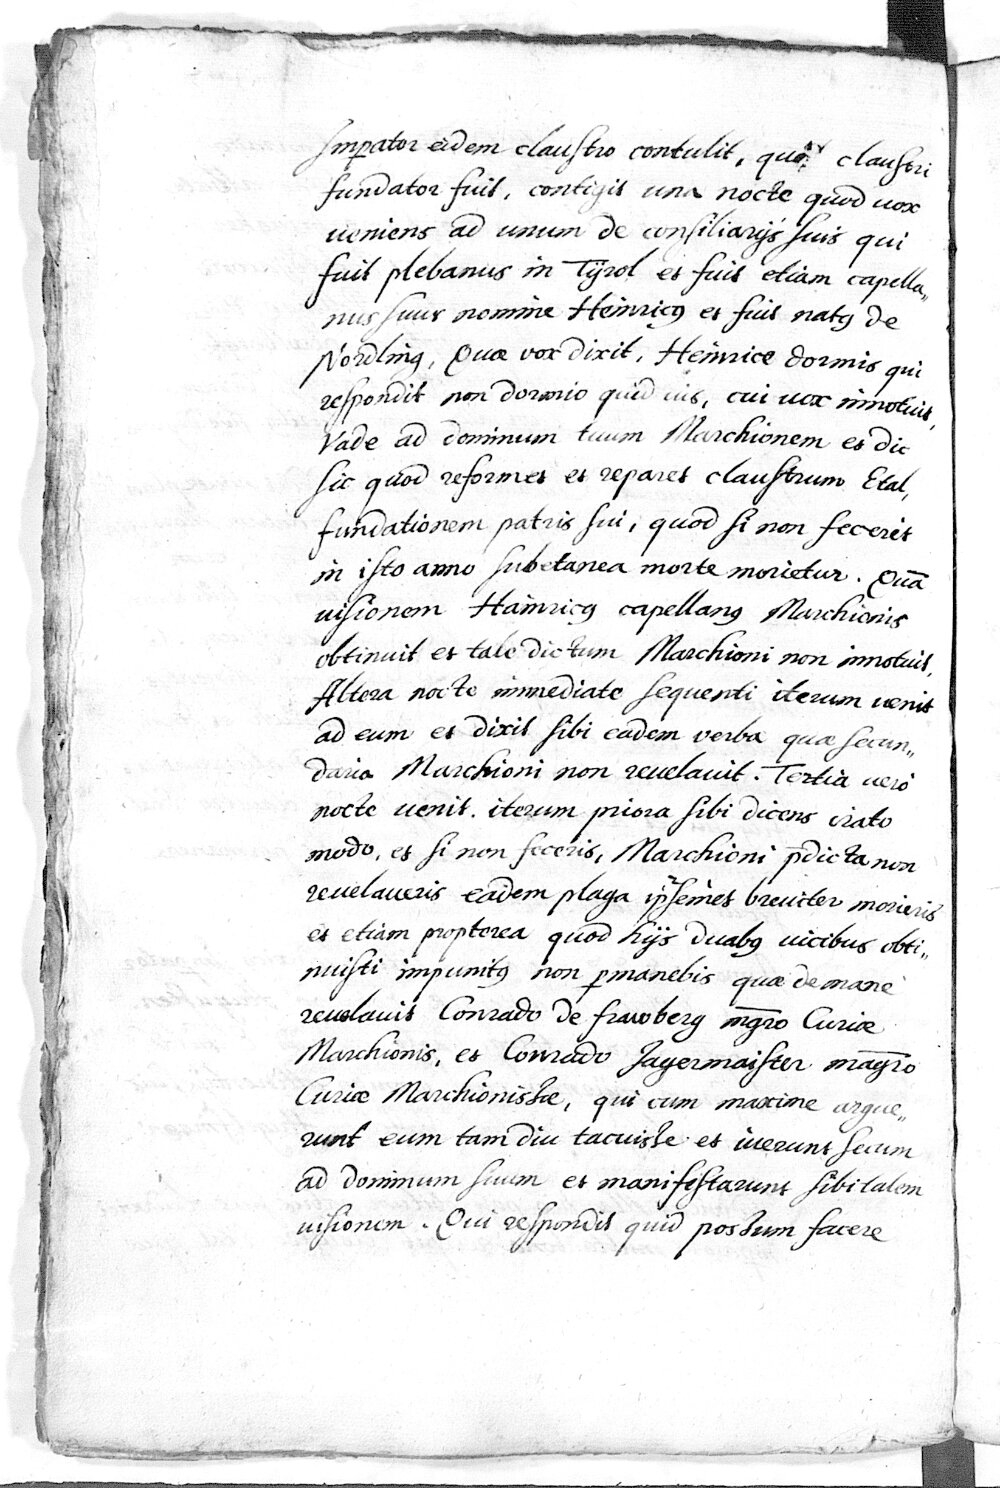 Imperator eidem claustro contulit, claustri
fundator fuit, contigit una nocte quod uox
ueniens ad unum de consiliarijs suis qui
fuit plebanus in Tÿrol et fuit etiam capella„
nus suus nomine Heinricꝰ et fuit natꝰ de
Nördling, Quæ vox dixit, Heinrice dormis qui
respondit non dormio quid uis, cui uox innotuit,
Vade ad dominum tuum Marchionem et dic
sic quod reformet et reparet claustrum Etal,
fundationem patris sui, quod si non fecerit
in isto anno subetanea morte morietur. Quā
uisionem Hainricꝰ capellanꝰ Marchionis
obtinuit et tale dictum Marchioni non innotuit,
Altera nocte immediate sequenti iterum uenit
ad eum et dixit sibi eadem verba quæ secun„
daria Marchioni non reuelauit. Tertia uero
nocte uenit. iterum priora sibi dicens irato
modo, et si non feceris, Marchioni p̄dicta non
reuelaueris eadem plaga breuiter morieris
et etiam propterea quod hijs duabꝰ uicibus obti„
nuisti impunitꝰ non ꝑmanebis quæ de mane
reuelauit Conrado de frawberg mg̅ro Curiæ
Marchionis, et Conrado Jagermaister mag̅ro
Curiæ Marchionissæ, qui eum maxime argue„
runt eum tam diu tacuisse et iuerunt secum
ad dominum suum et manifestarunt sibi talem
uisionem. Qui respondit quid possum facere